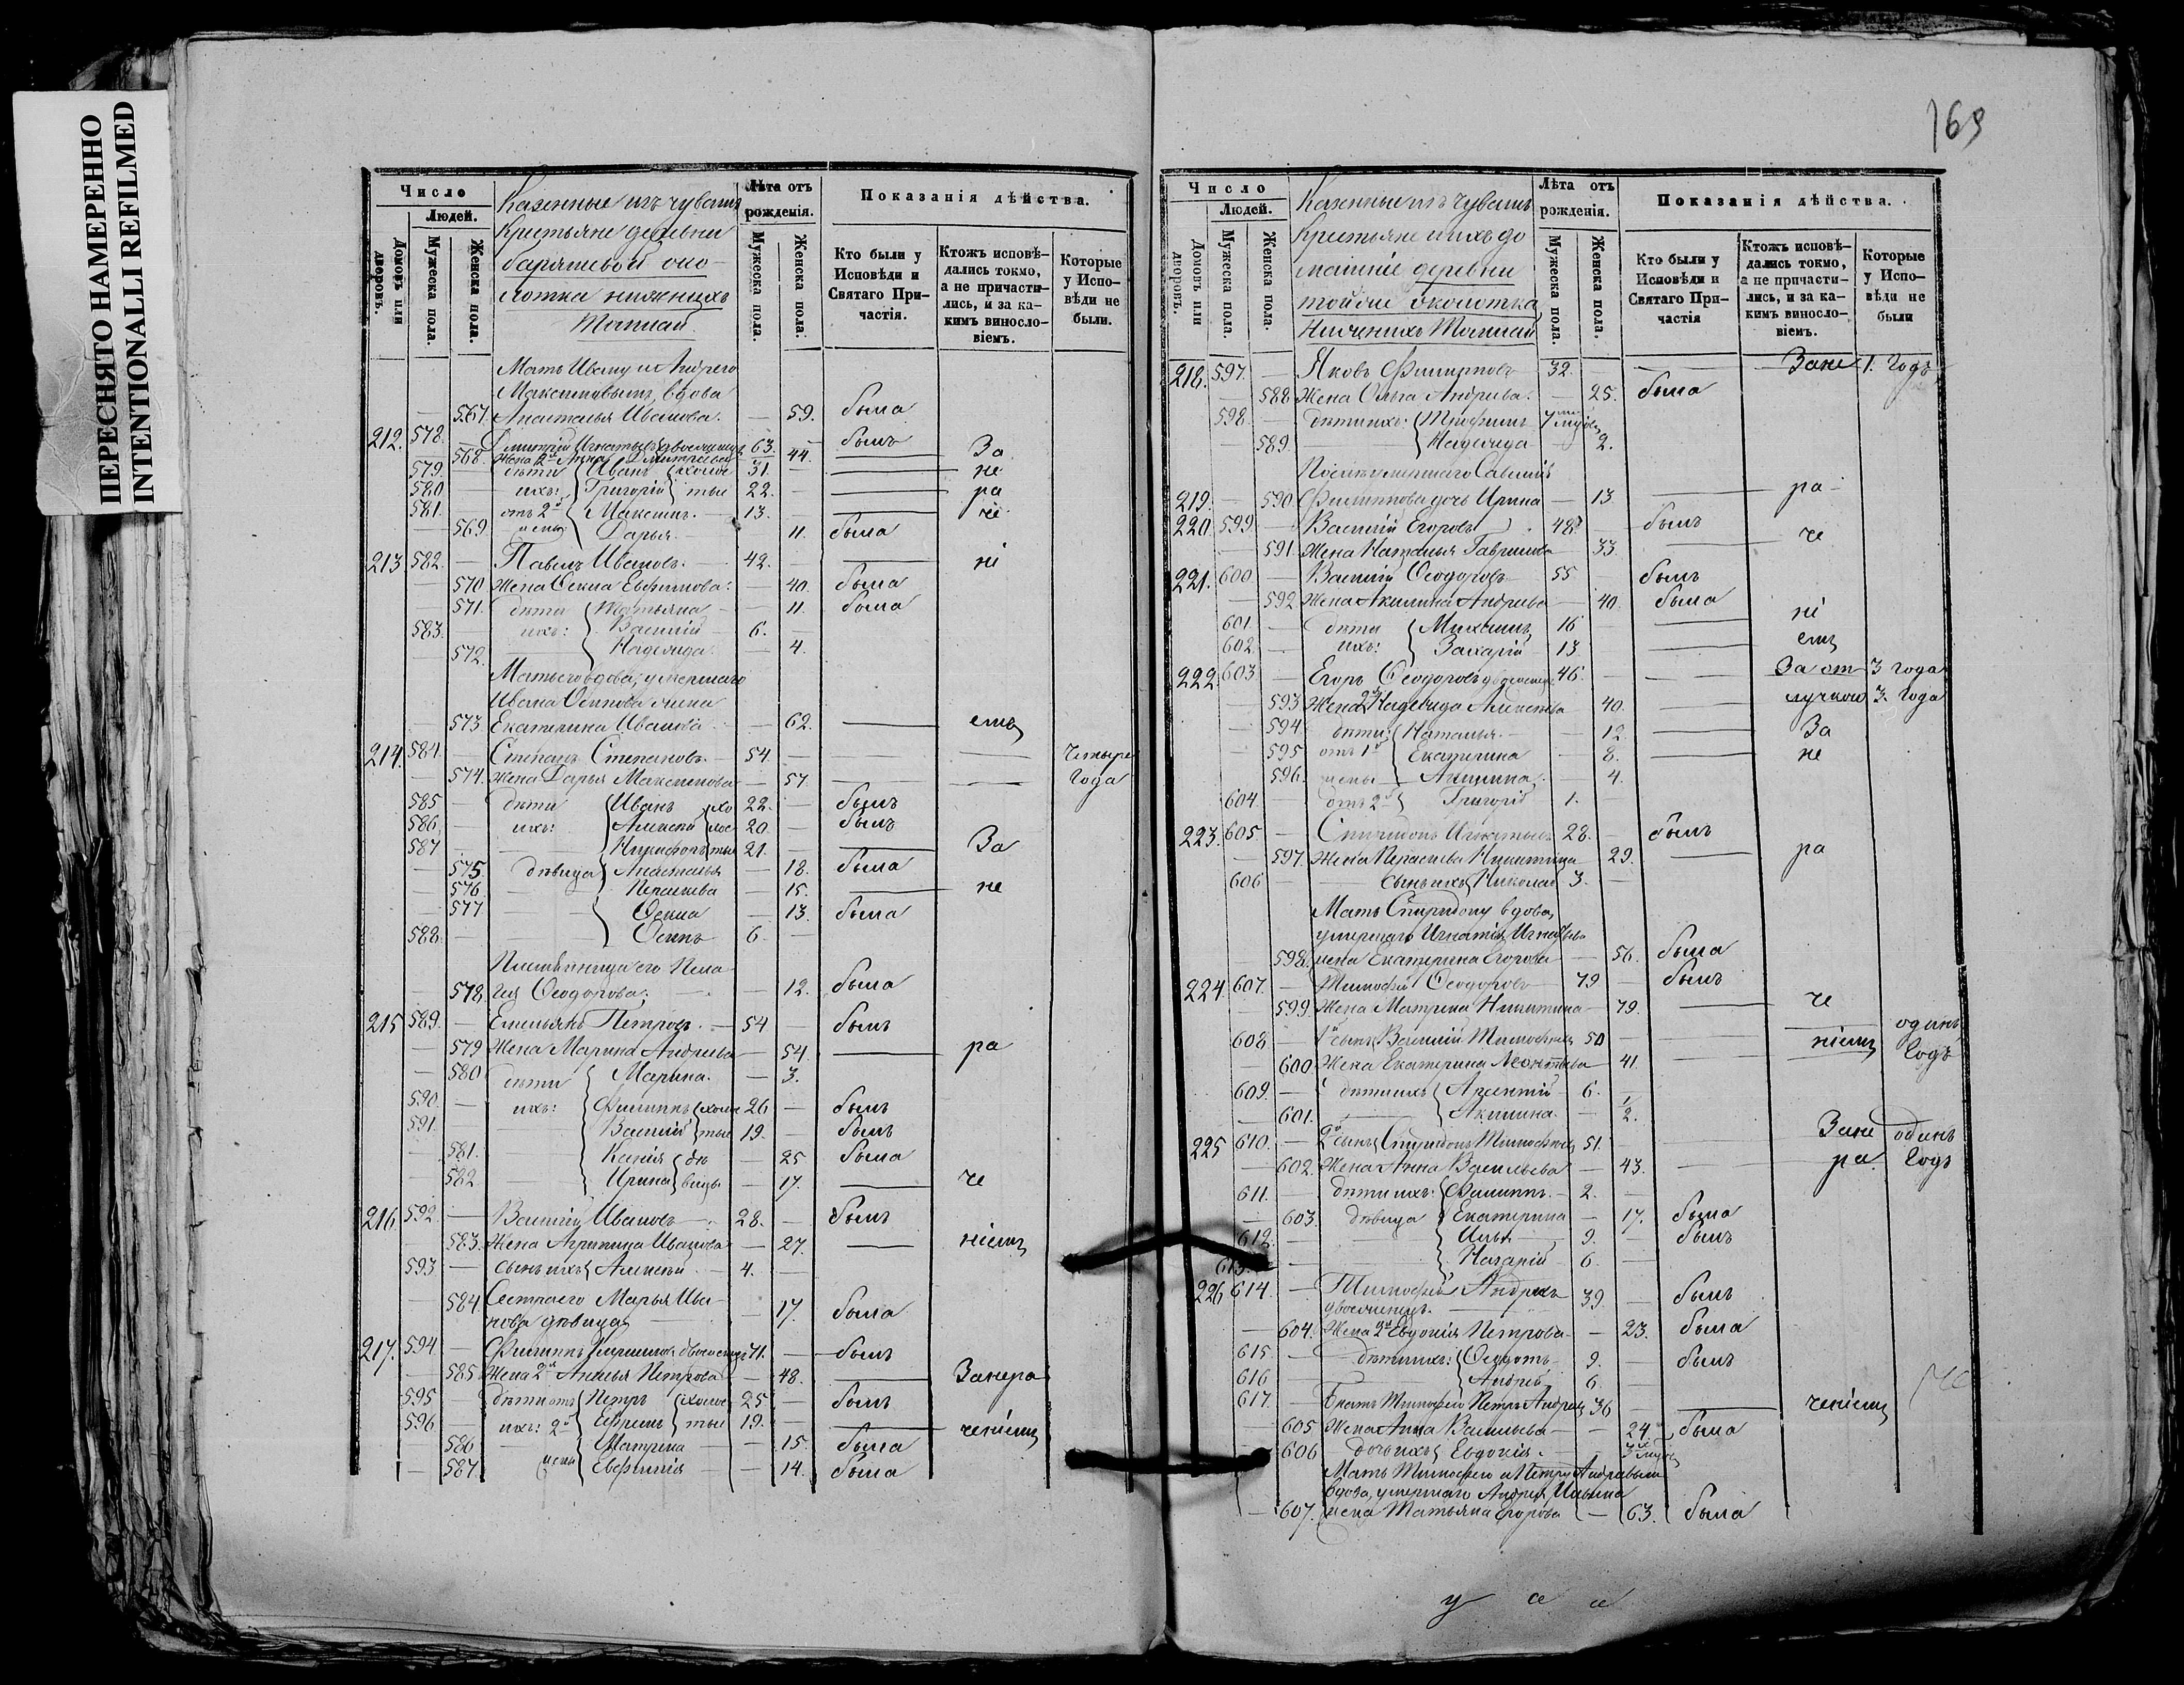 ПЕРЕСНЯТО НАМЕРЕННО
INTENTIONALLI REFILMED
169
Число
Людей.
Домовъ или дворовъ.
Мужеска пола.
Женска пола.
Казенные изъ чувашъ
Крестьяне деревни
око-
лотка нижнихъ
Лѣта отъ рожденія.
Мужеска пола.
Женска пола.
Показанія дѣйства.
Кто были у Исповѣди и Святаго Причастія.
Ктожъ исповѣ-
дались токмо,
а не причасти-
лись, и за ка-
кимъ винословіемъ.
Которые у Исповѣди не были.
Мать Ивану и Андрею
Максимовымъ, вдова
567. Анастасья Иванова. — 59. была
212. 578. — Дмитрій Игнатьевъ двоеженецъ 63. былъ
568. Жена 2я Анна Дмитріева — 44. — За
579. — дѣти Иванъ холос 31. — не
580 — ихъ: Григорій тые 22. — ра
581. отъ 2й Максимъ. 13. — че
569. жены Дарья. — 11. была
213. 582. — Павелъ Ивановъ. 42. — ні
570 Жена Ѳекла Евфимова. — 40. была
571. дѣти Татьяна — 11. была
583. — ихъ: Василій 6. —
572. Надежда. — 4.
Мать его вдова, умершаго
Ивана Осипова жена
573 Екатерина Иванова — 62. — емъ
214. 584 — Степанъ Степановъ. 54. — Четыре
574. Жена Дарья Максимова — 57. — Года
585 — дѣти Иванъ хо 22. — былъ
586. — ихъ: Алексѣй лос 20. — былъ
587 — Никифоръ тые 21. — За
575 дѣвица Анастасья — 18. была
576 Пелагева — 15. — не
577 Ѳекла — 13. была
588. — Осипъ 6. —
Племянница его Пела-
578 гія Ѳеодорова. — 12. была
215 589. — Емельянъ Петровъ. 54 — былъ
579 Жена Марина Андреева — 54. — ра
580 дѣти Марина. — 3.
590. — ихъ: Филиппъ холос 26 — былъ
591. Василій тые 19. — былъ
581. Ксенія дѣ — 25 была
582 Ирина вицы — 17. — че
216 592. — Василій Ивановъ 28. — былъ
583. Жена Агрипина Иванова — 27. — ніемъ
593 — сынъ ихъ Алексѣй 4. —
584 Сестра его Марья Ива-
нова дѣвица — 17. была
217. 594 — Филиппъ двоеженецъ 71. — былъ
585 Жена 2я Петрова — 48. — Занера
595 — дѣти отъ Петръ холос 25 — былъ
596 — ихъ: 2й Ефремъ тые 19. — ченіемъ
586 Матрена — 15. была
587. жены Евфимія — 14. была
Число
Людей.
Домовъ или дворовъ.
Мужеска пола.
Женска пола.
Казенные изъ чувашъ
Крестьяне и ихъ до
машніе деревни
околотка
Нижнихъ
Лѣта отъ рожденія.
Мужеска пола.
Женска пола.
Показанія дѣйства.
Кто были у Исповѣди и Святаго Причастія
Ктожъ исповѣ-
дались токмо,
а не причасти-
лись, и за ка-
кимъ винословіемъ.
Которые у Исповѣди не были
218. 597. — Яковъ Филиповъ 32. — Зане 1. Годъ
588 Жена Ольга Андреева. — 25. была
598. — дѣти ихъ: Трофимъ 7
589. Надежда 2.
После умершаго Савелія
219. — 590. Филиппова дочь Ирина — 13 — ра
220 599 — Василій Егоровъ 48. — былъ
591. Жена Наталья Гаврилова 33. — че
221. 600 — Василій Ѳеодоровъ 55 былъ
592 Жена Акилина Андреева — 40. была
601. — дѣти Михаилъ 16 — ні
602. — ихъ: Захарій 13 — емъ
222. 603 — Егоръ Ѳеодоровъ двоежен. 46. — За от 3 года
593 Жена 2я Надежда Алексѣева 40. — лучкою 3. Года
594. дѣти Наталья. — 12. — За
595 отъ 1й Екатерина — 8. — не
596. жены Акилина. — 4.
604. — отъ 2й Григорій 1. —
223. 605 — Спиридонъ Игнатьевъ 28. — былъ
597. Жена Параскева Никитина 29. — ра
606 — сынъ ихъ Николай 3. —
Мать Спиридону вдова,
умершаго Игнатія Игнатьева
598. жена Екатерина Егорова — 56. была
224 607. — Тимофей Ѳеодоровъ 79 — былъ
599 Жена Матрена Никитина — 79. — че
608 — 1й сынъ Василій Тимофеевъ 50 — ніемъ одинъ
600 Жена Екатерина Леонтьева — 41. Годъ
609. — дѣти ихъ Арсентій 6.
601. Акилина. — 2.
225 610. — 2й сынъ Спиридонъ Тимофеевъ 51. — Зане одинъ
602. Жена Анна Васильева — 43. — ра. Годъ
611. — дѣти ихъ: Филиппъ. 2. —
603. дѣвица Екатерина — 17. была
612. — Илья 9. — былъ
613. — Назарій 6. —
226 614. — Тимофей Андреевъ
двоеженецъ. 39. — былъ
604. Жена 2я Евдокія Петрова — 23. была
615. — дѣти ихъ: Ѳедотъ 9. — былъ
616 — Андрей 6. —
617. — Братъ Тимофей Петръ Андреевъ 36 — ченіемъ
605 Жена Анна Васильева — 24. была
606 дочь ихъ Евдокія.
Мать Тимофею и Петру Андреевымъ
вдова, умершаго Андрея Ильина
607. жена Татьяна Егорова — 63. была